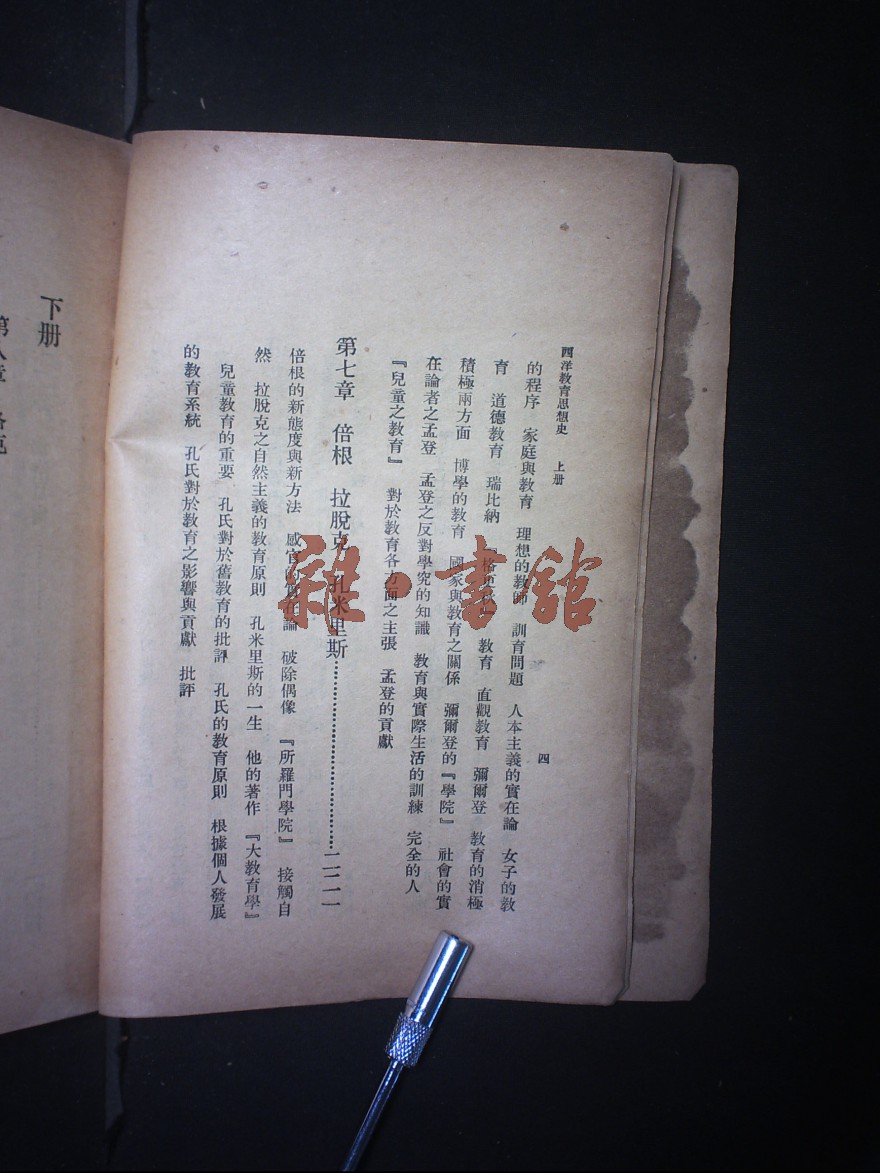 西洋教育思想史 上册
四
的程序 家庭與教育 理想的教師 訓育問題 人本主義的實在論 女子的教
育 道德教育 瑞比納 教育 直觀教育 彌爾登 教育的消極
積極兩方面 博學的教育 國家與教育之關係 彌爾登的『學院』 社會的實
在論者之孟登 孟登之反對學究的知識 教育與實際生活的訓練 完全的人
『兒童之教育』 對於教育各方面之主張 孟登的貢獻
第七章 倍根 拉脫克 孔米里斯……………………二二一
倍根的新態度與新方法 感官的實在論 破除偶像 『所羅門學院』 接觸自
然 拉脫克之自然主義的教育原則 孔米里斯的一生 他的著作 『大教育學』
兒童教育的重要 孔氏對於舊教育的批評 孔氏的教育原則 根據個人發展
的教育系統 孔氏對於教育之影響與貢獻 批評
下册
雜·書館